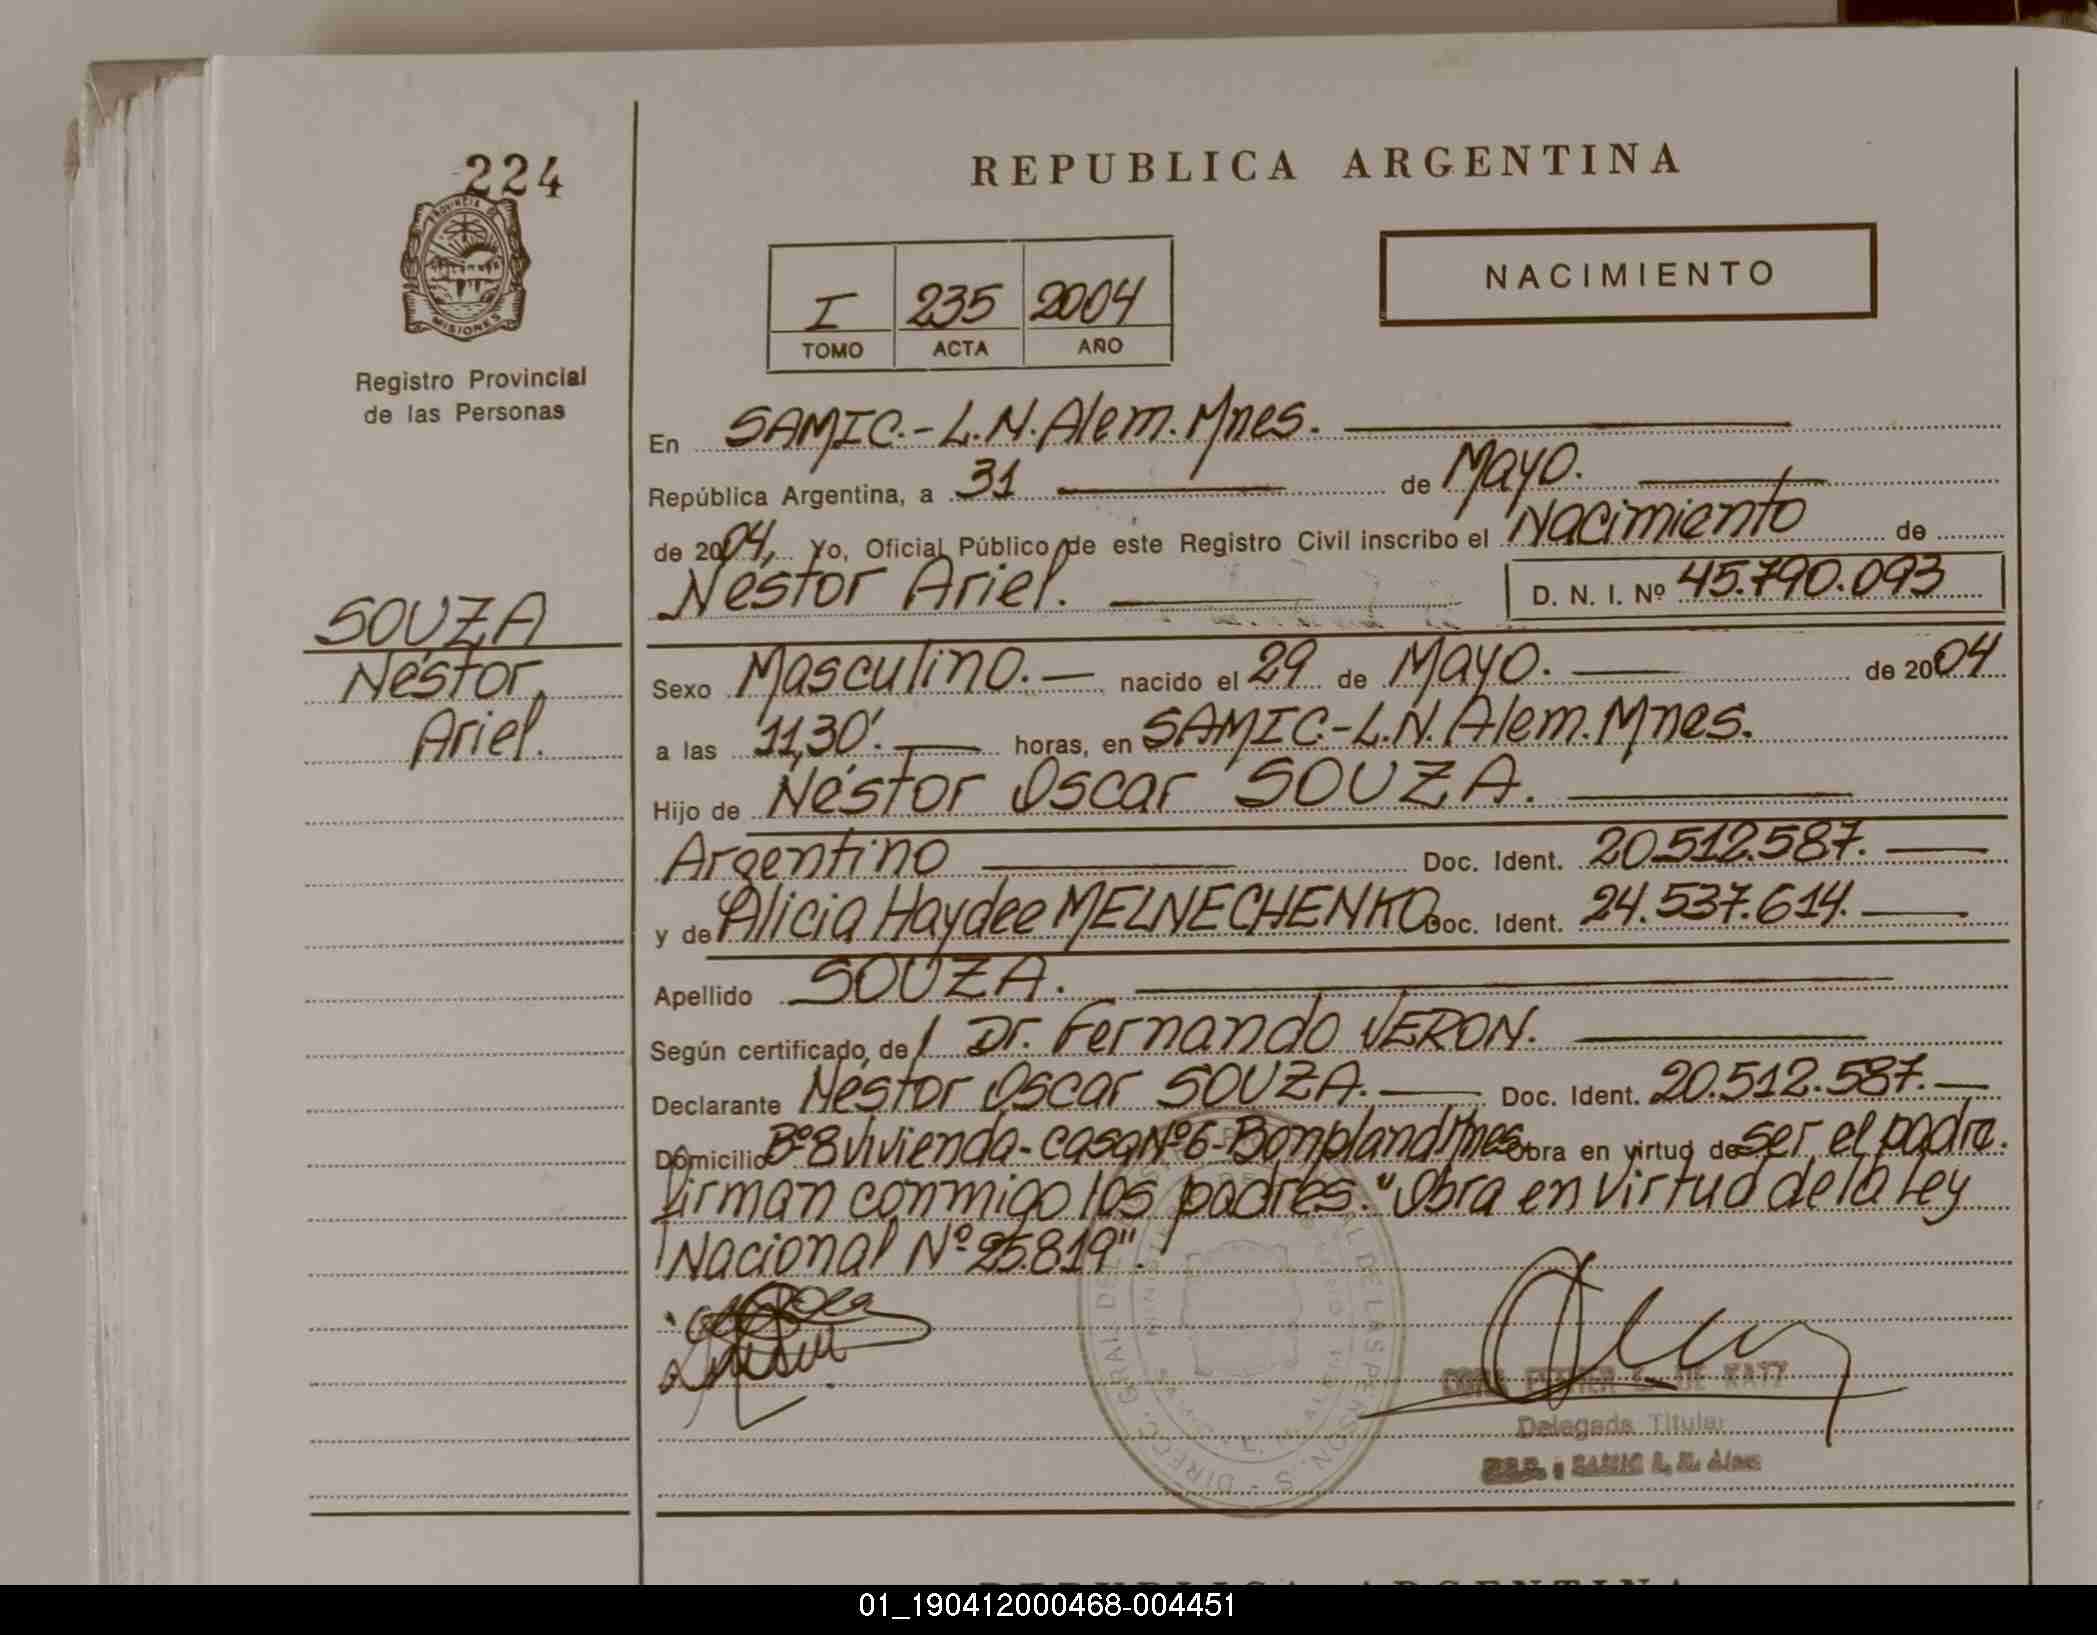 224
PROVINCIA DE
MISIONES
Registro Provincial
de las Personas
SOUZA
Néstor,
Ariel.
REPUBLICA ARGENTINA
NACIMIENTO
I 235 2004
TOMO ACTA AÑO
En SAMIC.-L.N.Alem.Mnes.
República Argentina, a 31 de Mayo.
de 2004, Yo, Oficial Público de este Registro Civil inscribo el Nacimiento de
Néstor Ariel. D. N. I. Nº 45.790.093
Sexo Masculino. nacido el 29 de Mayo. de 2004
a las 11,30'. horas, en SAMIC-L.N.Alem.Mnes.
Hijo de Néstor Oscar SOUZA.
Argentino Doc. Ident. 20.512.587.
y de Alicia Haydee MELNECHENKO Doc. Ident. 24.537.614.
Apellido SOUZA.
Según certificado de/ Dr. Fernando VERON.
Declarante Néstor Oscar SOUZA. Doc. Ident. 20.512.587.
Domicilio Bº 8 vivienda-casa Nº 6-Bonpland Mnes obra en virtud de ser el padre.
Firman conmigo los padres. "Obra en virtud de la Ley
Nacional Nº 25.819".
DE KATZ
Delegada Titular
SAMIC L. N. Alem
REPUBLICA ARGENTINA
01_190412000468-004451